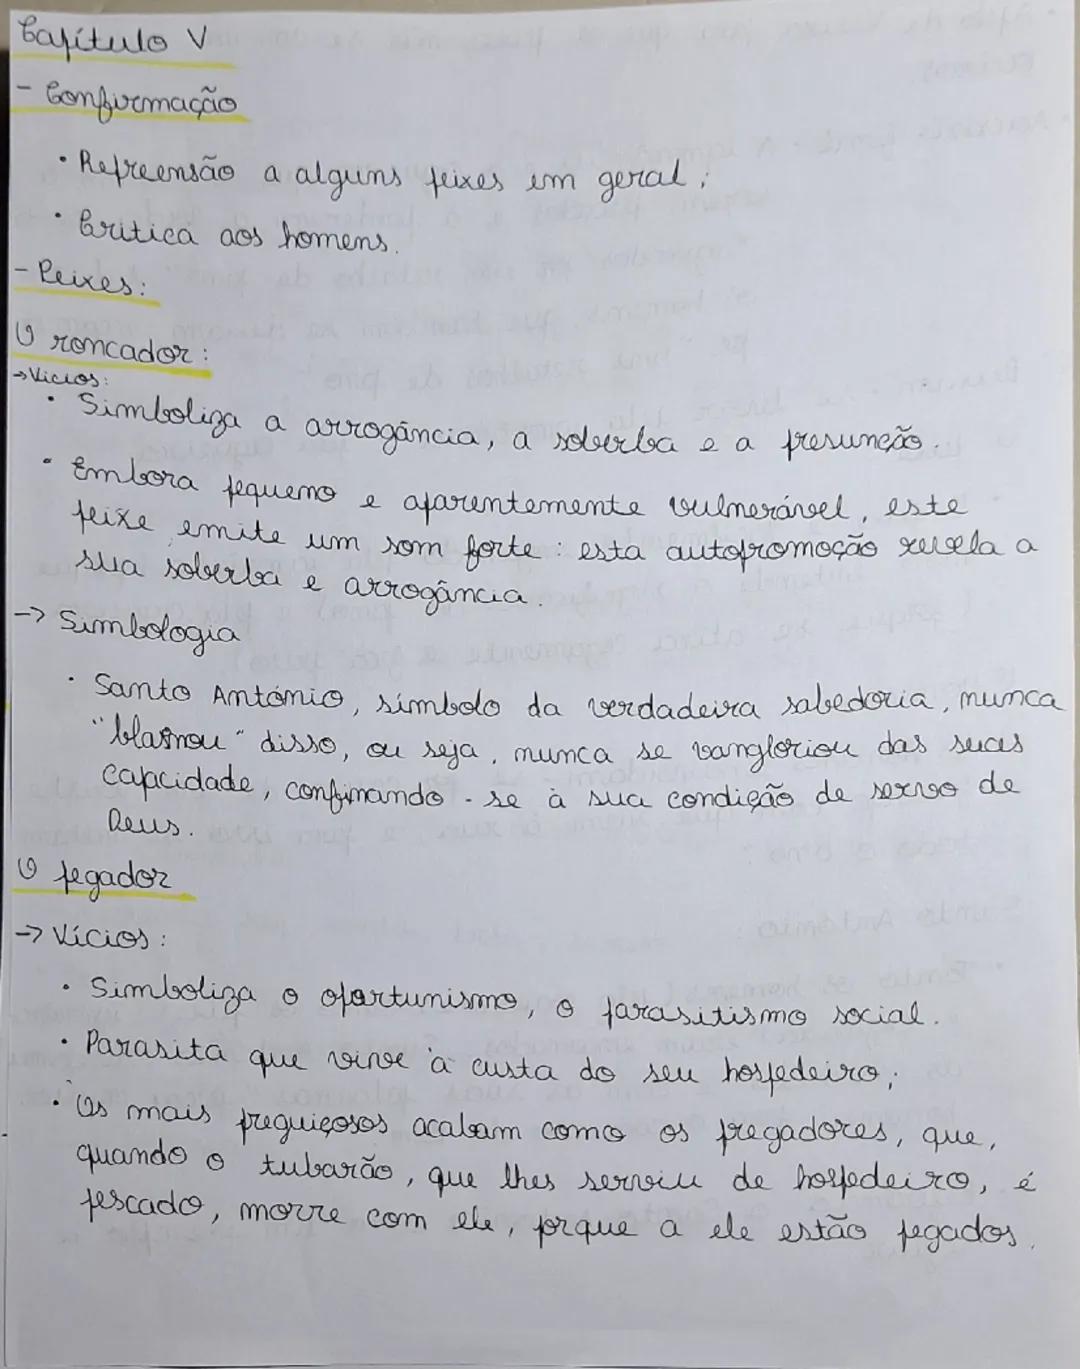 Capítulo V
- Confirmação
• Repreensão a alguns peixes em geral;
• Critica aos homens.
- Peixes:
O roncador:
→ Vicios:
• Simboliza a arrogância, a soberba e a presunção.
• Embora pequeno e aparentemente vulnerável, este
peixe emite um som forte: esta autopromoção revela a
sua soberba e arrogância.
→ Simbologia
• Santo António, símbolo da verdadeira sabedoria, nunca
"blasnou" disso, ou seja, nunca se vangloriou das suas
capacidade, confinando-se à sua condição de servo de
Deus.
O pegador
→ Vícios:
• Simboliza o oportunismo, o parasitismo social.
• Parasita que vive à custa do seu hospedeiro;
• Os mais preguiçosos acabam como os pregadores, que,
quando o tubarão, que lhes serviu de hospedeiro, é
pescado, morre com ele, porque a ele estão pegados.